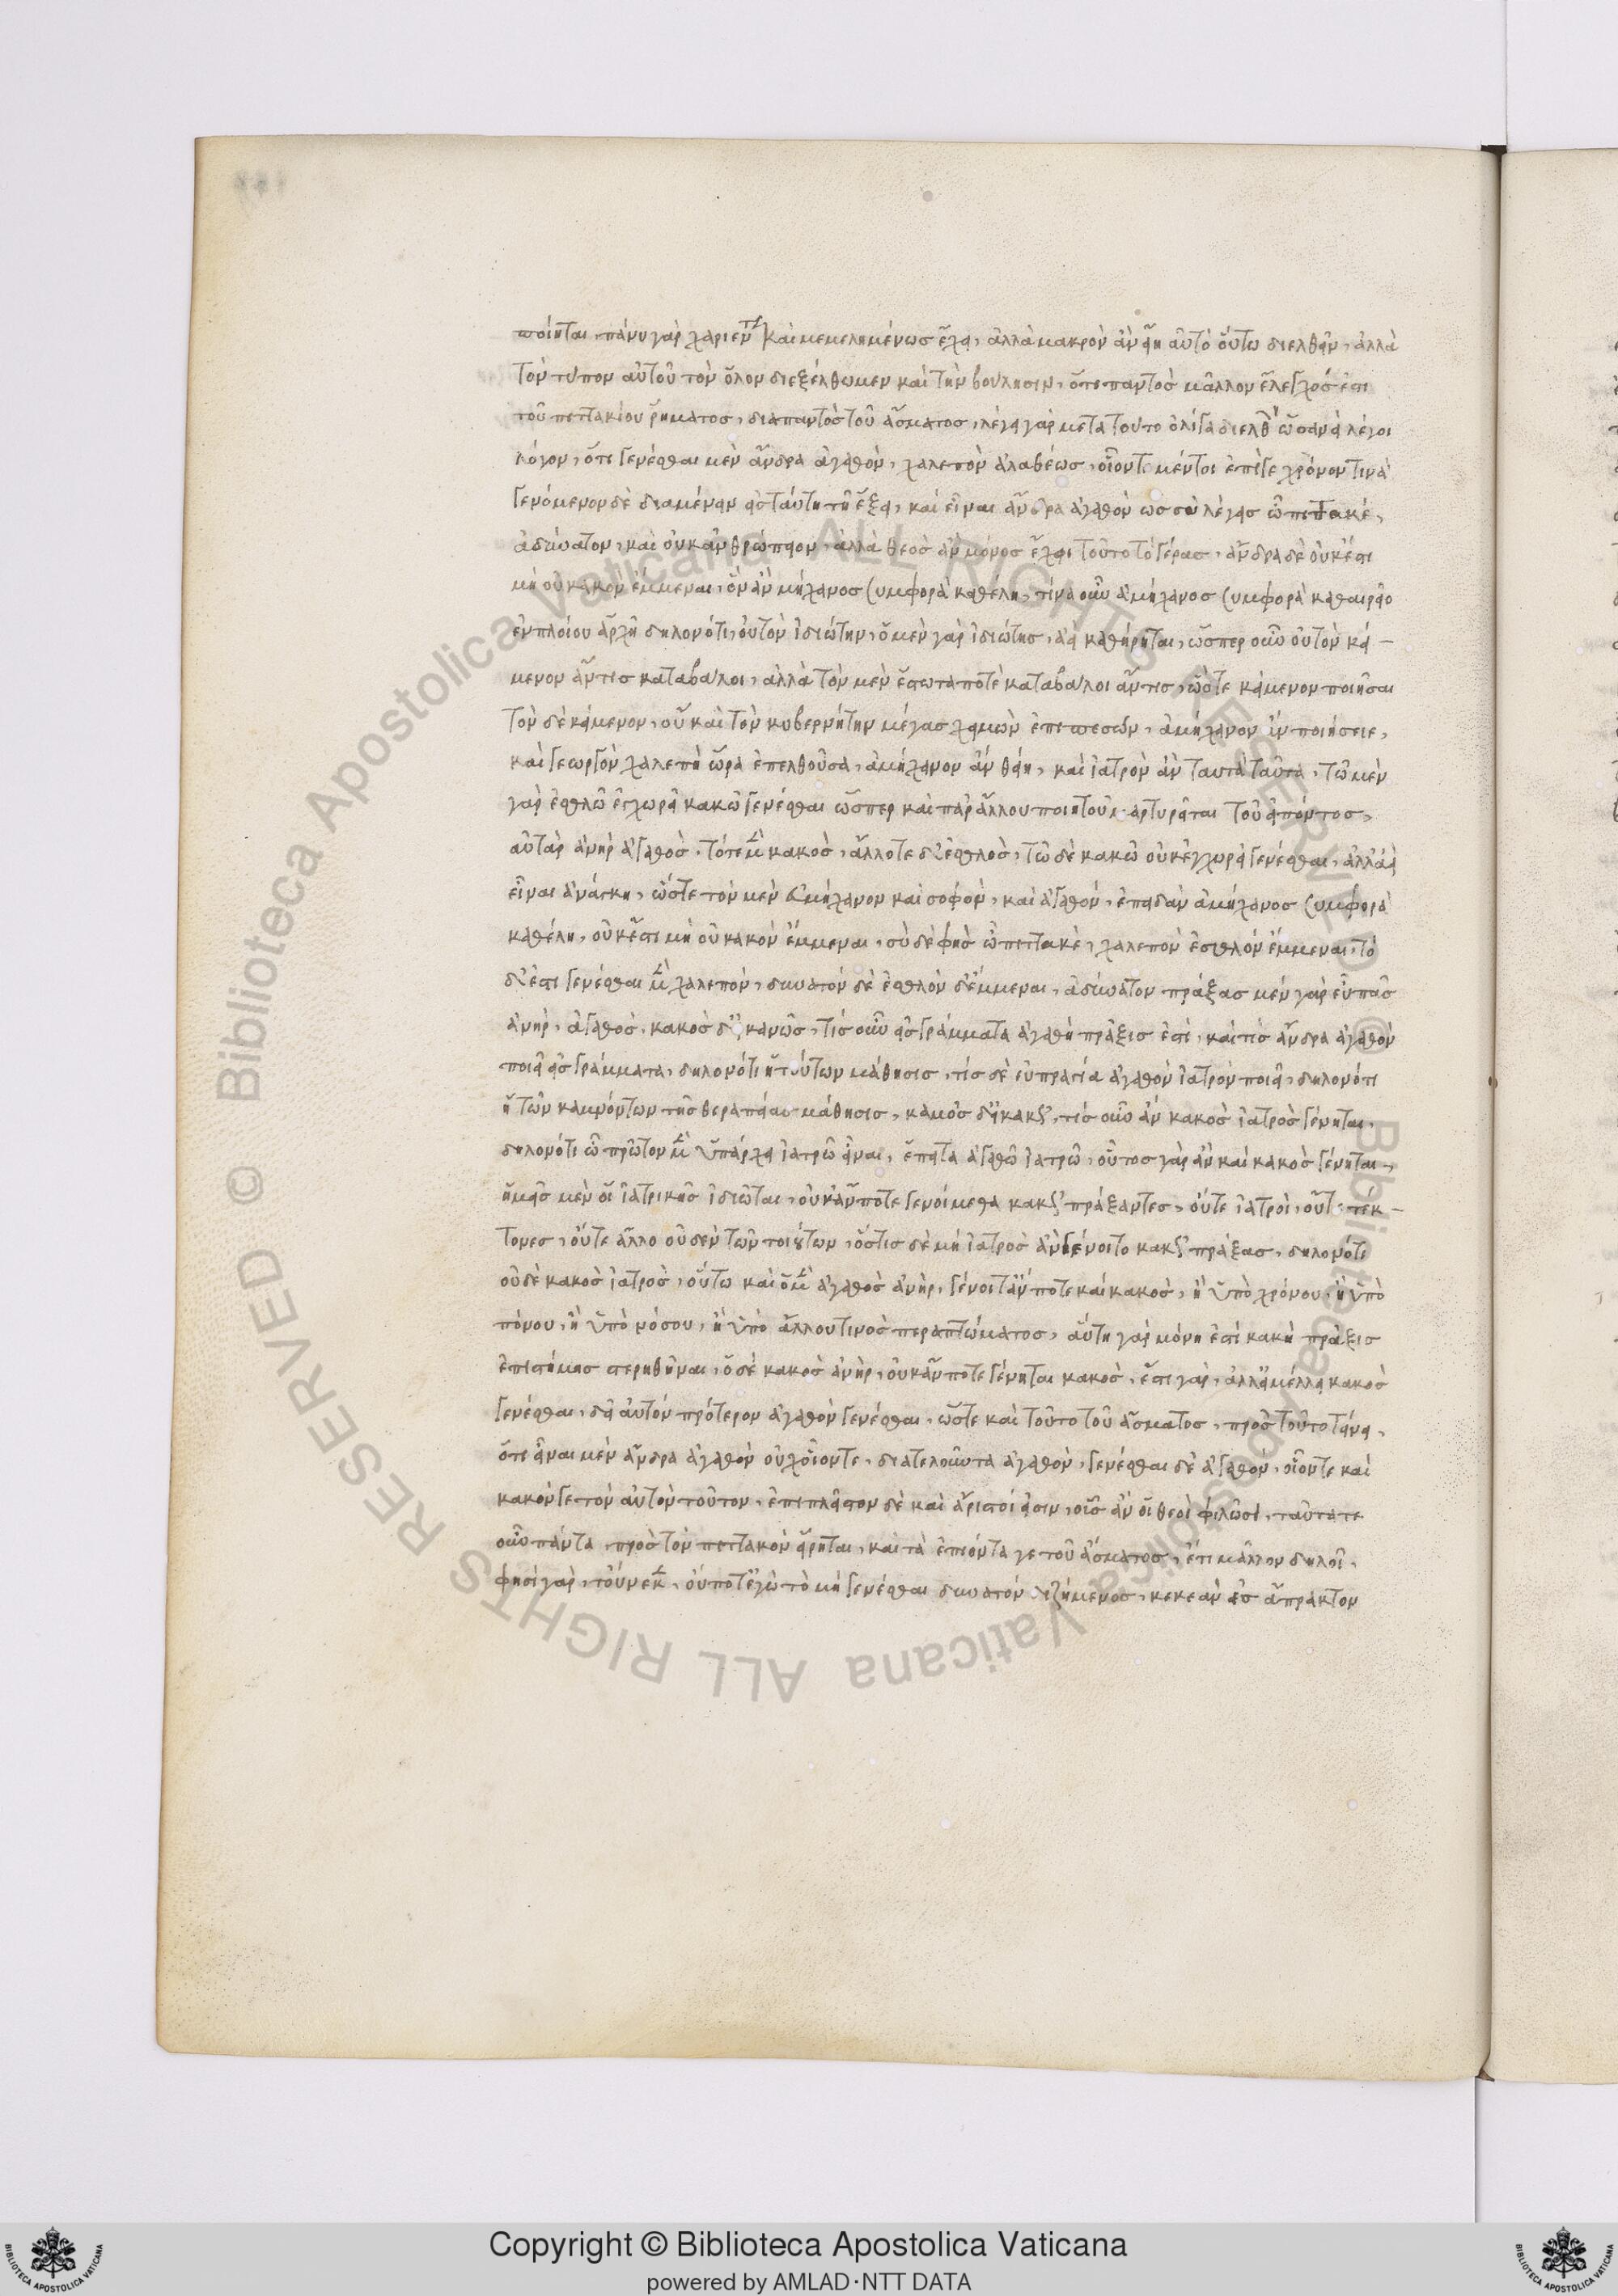 ποίηται. πάνυ γὰρ χαριέντως καὶ μεμελημένως ἔχει, ἀλλὰ μακρὸν ἂν εἴη αὐτὸ οὕτω διελθεῖν, ἀλλὰ
τὸν τύπον αὐτοῦ τὸν ὅλον διεξέλθωμεν καὶ τὴν βούλησιν, ὅτι παντὸς μᾶλλον ἔλεγχός ἐστι
τοῦ πιττακίου ῥήματος, διαπαντὸς τοῦ ᾄσματος, λέγει γὰρ μετὰ τοῦτο ὀλίγα διελθὼν ὡσανεὶ λέγοι
λόγον, ὅτι γενέσθαι μὲν ἄνδρα ἀγαθὸν, χαλεπὸν ἀλαθέως, οἷόντε μέντοι ἐπί γε χρόνον τινὰ
γενόμενον δὲ διαμένειν εἰς ταύτη τῆ ἕξει, καὶ εἶναι ἄνδρα ἀγαθὸν ὡς σὺ λέγεις ὦ πιττακέ,
ἀδύνατον, καὶ οὐκ ἀνθρώπειον, ἀλλὰ θεὸς ἂν μόνος ἔχοι τοῦτο τὸ γέρας, ἄνδρα δὲ οὐκ ἔστι
μὴ οὐ κακὸν ἔμμεναι, ὃν ἂν μήχανος συμφορὰ καθέλη, τίνα οὖν ἀμήχανος συμφορὰ καθαιρεῖ ὁ
ἐν πλοίου ἀρχῆ δηλονότι, οὐ τὸν ἰδιώτην, ὁ μὲν γὰρ ἰδιώτης, ἀεὶ καθήρηται, ὥσπερ οὖν οὐ τὸν κεί-
μενον ἄν τις καταβάλοι, ἀλλὰ τὸν μὲν ἑστῶτα ποτὲ καταβάλοι ἄν τις, ὥστε κείμενον ποιῆσαι
τὸν δὲ κείμενον, οὒ καὶ τὸν κυβερνήτην μέγας χειμὼν ἐπιπεσὼν, ἀμήχανον ἂν ποιήσειε,
καὶ γεωργὸν χαλεπὴ ὥρα ἐπελθοῦσα, ἀμήχανον ἂν θείη, καὶ ἰατρὸν ἂν ταυτὰ ταῦτα, τῶ μὲν
γὰρ ἐσθλῶ ἐγχωρεῖ κακῶ γενέσθαι ὥσπερ καὶ παρ' ἄλλου ποιητοῦ μαρτυρεῖται τοῦ εἰπόντος,
αὐτὰρ ἀνὴρ ἀγαθὸς, τότε μὲν κακὸς, ἄλλοτε δ' ἐσθλὸς, τῶ δὲ κακῶ οὐκ ἐγχωρεῖ γενέσθαι, ἀλλ' ἀεὶ
εἶναι ἀνάγκη, ὥστε τὸν μὲν εὐμήχανον καὶ σοφὸν, καὶ ἀγαθὸν, ἐπειδὰν ἀμήχανος συμφορὰ
καθέλη, οὐκ ἔστι μὴ οὐ κακὸν ἔμμεναι, σὺ δὲ φὴς ὦ πιττακὲ, χαλεπὸν ἐσθλὸν ἔμμεναι, τὸ
δ' ἐστι γενέσθαι μὲν χαλεπὸν, δυνατὸν δὲ ἐσθλὸν δ' ἔμμεναι, ἀδύνατον πράξας μὲν γὰρ εὖ πᾶς
ἀνὴρ, ἀγαθὸς, κακὸς δ' εἰ κακῶς, τίς οὖν εἰς γράμματα ἀγαθὴ πρᾶξις ἐστὶ, καὶ τίς ἄνδρα ἀγαθὸν
ποιεῖ εἰς γράμματα, δηλονότι ἡ τούτων μάθησις, τίς δὲ εὐπραγία ἀγαθὸν ἰατρὸν ποιεῖ, δηλονότι
ἡ τῶν καμνόντων τῆς θεραπείας μάθησις, κακὸς δὴ κακῶς, τίς οὖν ἂν κακὸς ἰατρὸς γένηται,
δηλονότι ὦ πρῶτον μὲν ὑπάρχει ἰατρῶ εἶναι, ἔπειτα ἀγαθῶ ἰατρῶ, οὗτος γὰρ ἂν καὶ κακὸς γένηται,
ἡμεῖς μὲν οἱ ἰατρικῆς ἰδιῶται, οὐκ ἄν ποτε γενοίμεθα κακῶς πράξαντες, οὔτε ἰατροὶ, οὔτε τέκ-
τονες, οὔτε ἄλλο οὐδὲν τῶν τοιούτων, ὅστις δὲ μὴ ἰατρὸς ἂν γένοιτο κακῶς πράξας, δηλονότι
οὐδὲ κακὸς ἰατρὸς, οὕτω καὶ ὁ μὲν ἀγαθὸς ἀνὴρ, γένοιτ' ἄν ποτε καὶ κακὸς, ἢ ὑπὸ χρόνου, ἢ ὑπὸ
πόνου, ἢ ὑπὸ νόσου, ἢ ὑπὸ ἄλλου τινὸς περιπτώματος, αὕτη γὰρ μόνη ἐστὶ κακὴ πρᾶξις
ἐπιστήμης στερηθῆναι, ὁ δὲ κακὸς ἀνὴρ, οὐκ ἄν ποτε γένηται κακὸς, ἔστι γὰρ, ἀλλ' εἰ μέλλει κακὸς
γενέσθαι, δεῖ αὐτὸν πρότερον ἀγαθὸν γενέσθαι, ὥστε καὶ τοῦτο τοῦ ᾄσματος, πρὸς τοῦτο τείνει,
ὅτι εἶναι μὲν ἄνδρα ἀγαθὸν οὐχ' οἷόντε, διατελοῦντα ἀγαθὸν, γενέσθαι δὲ ἀγαθὸν, οἷόντε καὶ
κακὸν γε τὸν αὐτὸν τοῦτον, ἐπιπλεῖστον δὲ καὶ ἄριστοί εἰσιν, οὓς ἂν οἱ θεοὶ φιλῶσι, ταῦτά τε
οὖν πάντα πρὸς τὸν πιττακὸν εἴρηται, καὶ τὰ ἐπιόντα γε τοῦ ᾄσματος, ἔτι μᾶλλον δηλοῖ,
φησὶ γὰρ, τοὔνεκεν, οὔποτ' ἐγὼ τὸ μὴ γενέσθαι δυνατὸν διζήμενος, κενεὰν ἐς ἄπρακτον
Copyright © Biblioteca Apostolica Vaticana
powered by AMLAD·NTT DATA